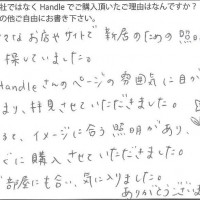 社ではなく Handle でご購入頂いたご理由はなんですか？
の他ご自由にお書き下さい。
お店やサイトで 新居のための照明
探していました。
Handleさんのページの雰囲気に目が
まり、拝見させていただきました。
て、イメージに合う照明があり、
ぐに購入させていただきました。
部屋にも合い、気に入りました。
ありがとうござい